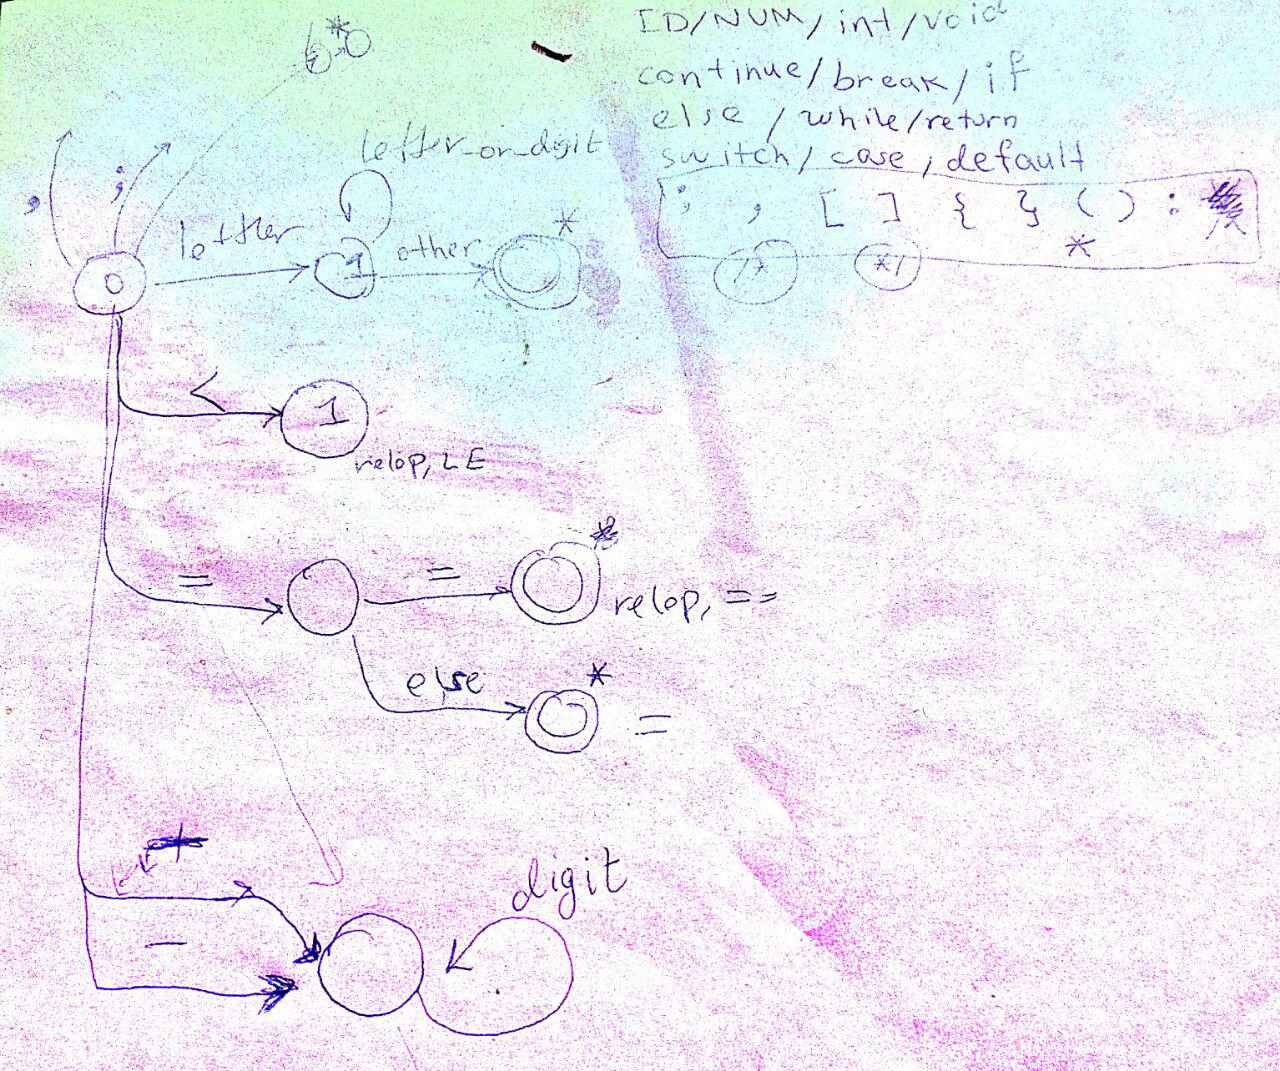 ID/NUM/int/void
continue/break/if
else/while/return
switch/case, default
; , [ ] { } ( ) :
*
/* */
*
letter_or_digit
, ;
letter other *
0 1
<
1
relop, LE
= = *
relop, ==
else *
=
+
digit
-